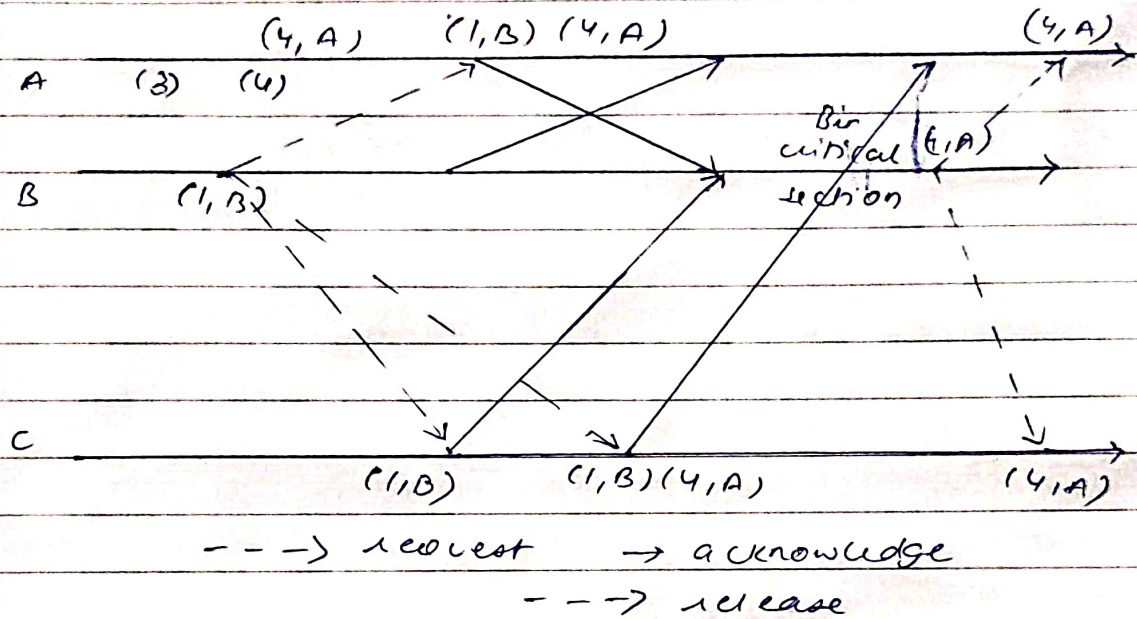 (4, A) (1, B) (4, A) (4, A)
A (3) (4)
Bin
critical (4, A)
B (1, B) section
C
(1, B) (1, B) (4, A) (4, A)
---> request → acknowledge
---> release